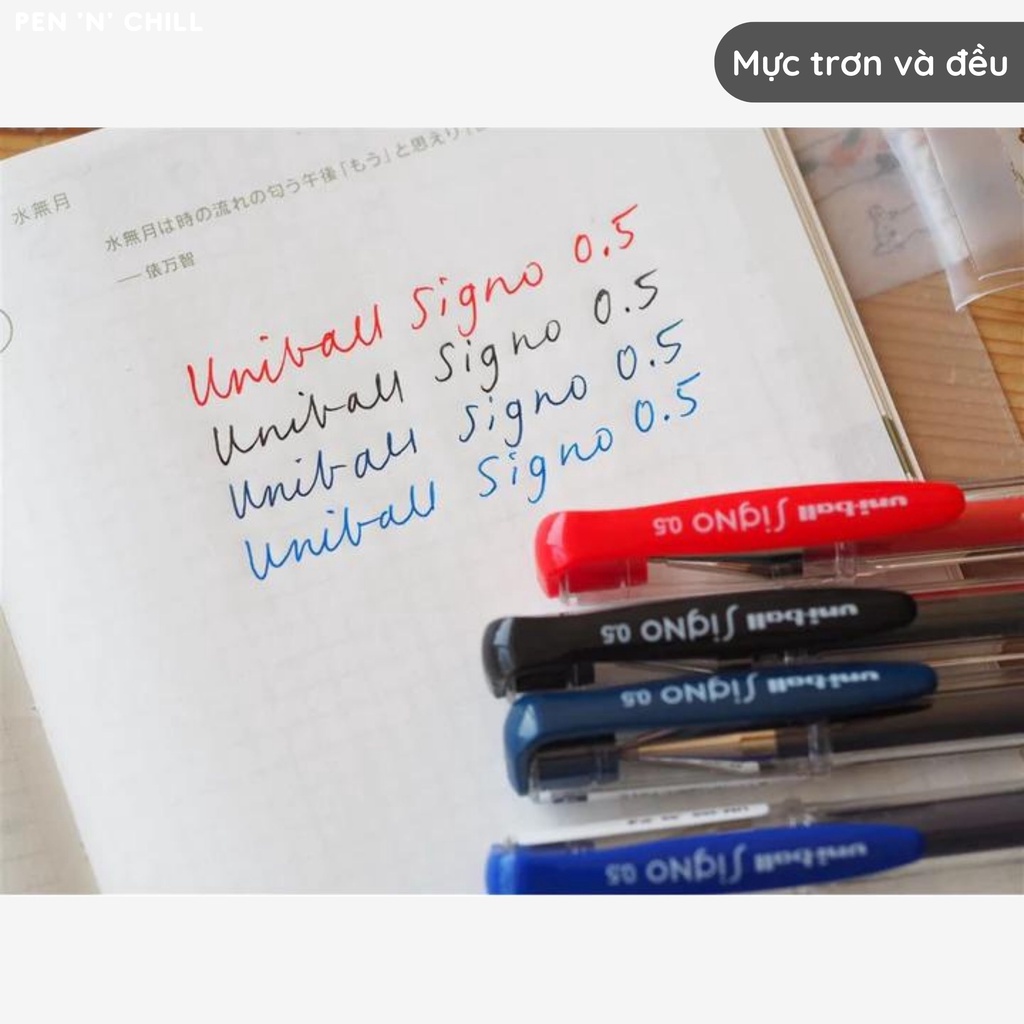 PEN 'N' CHILL
Mực trơn và đều
水無月
水無月は時の流れの匂う午後「もう」と思えり
── 俵万智
Uniball Signo 0.5
Uniball Signo 0.5
Uniball Signo 0.5
Uniball Signo 0.5
uni-ball Signo 0.5
uni-ball Signo 0.5
uni-ball Signo 0.5
uni-ball Signo 0.5